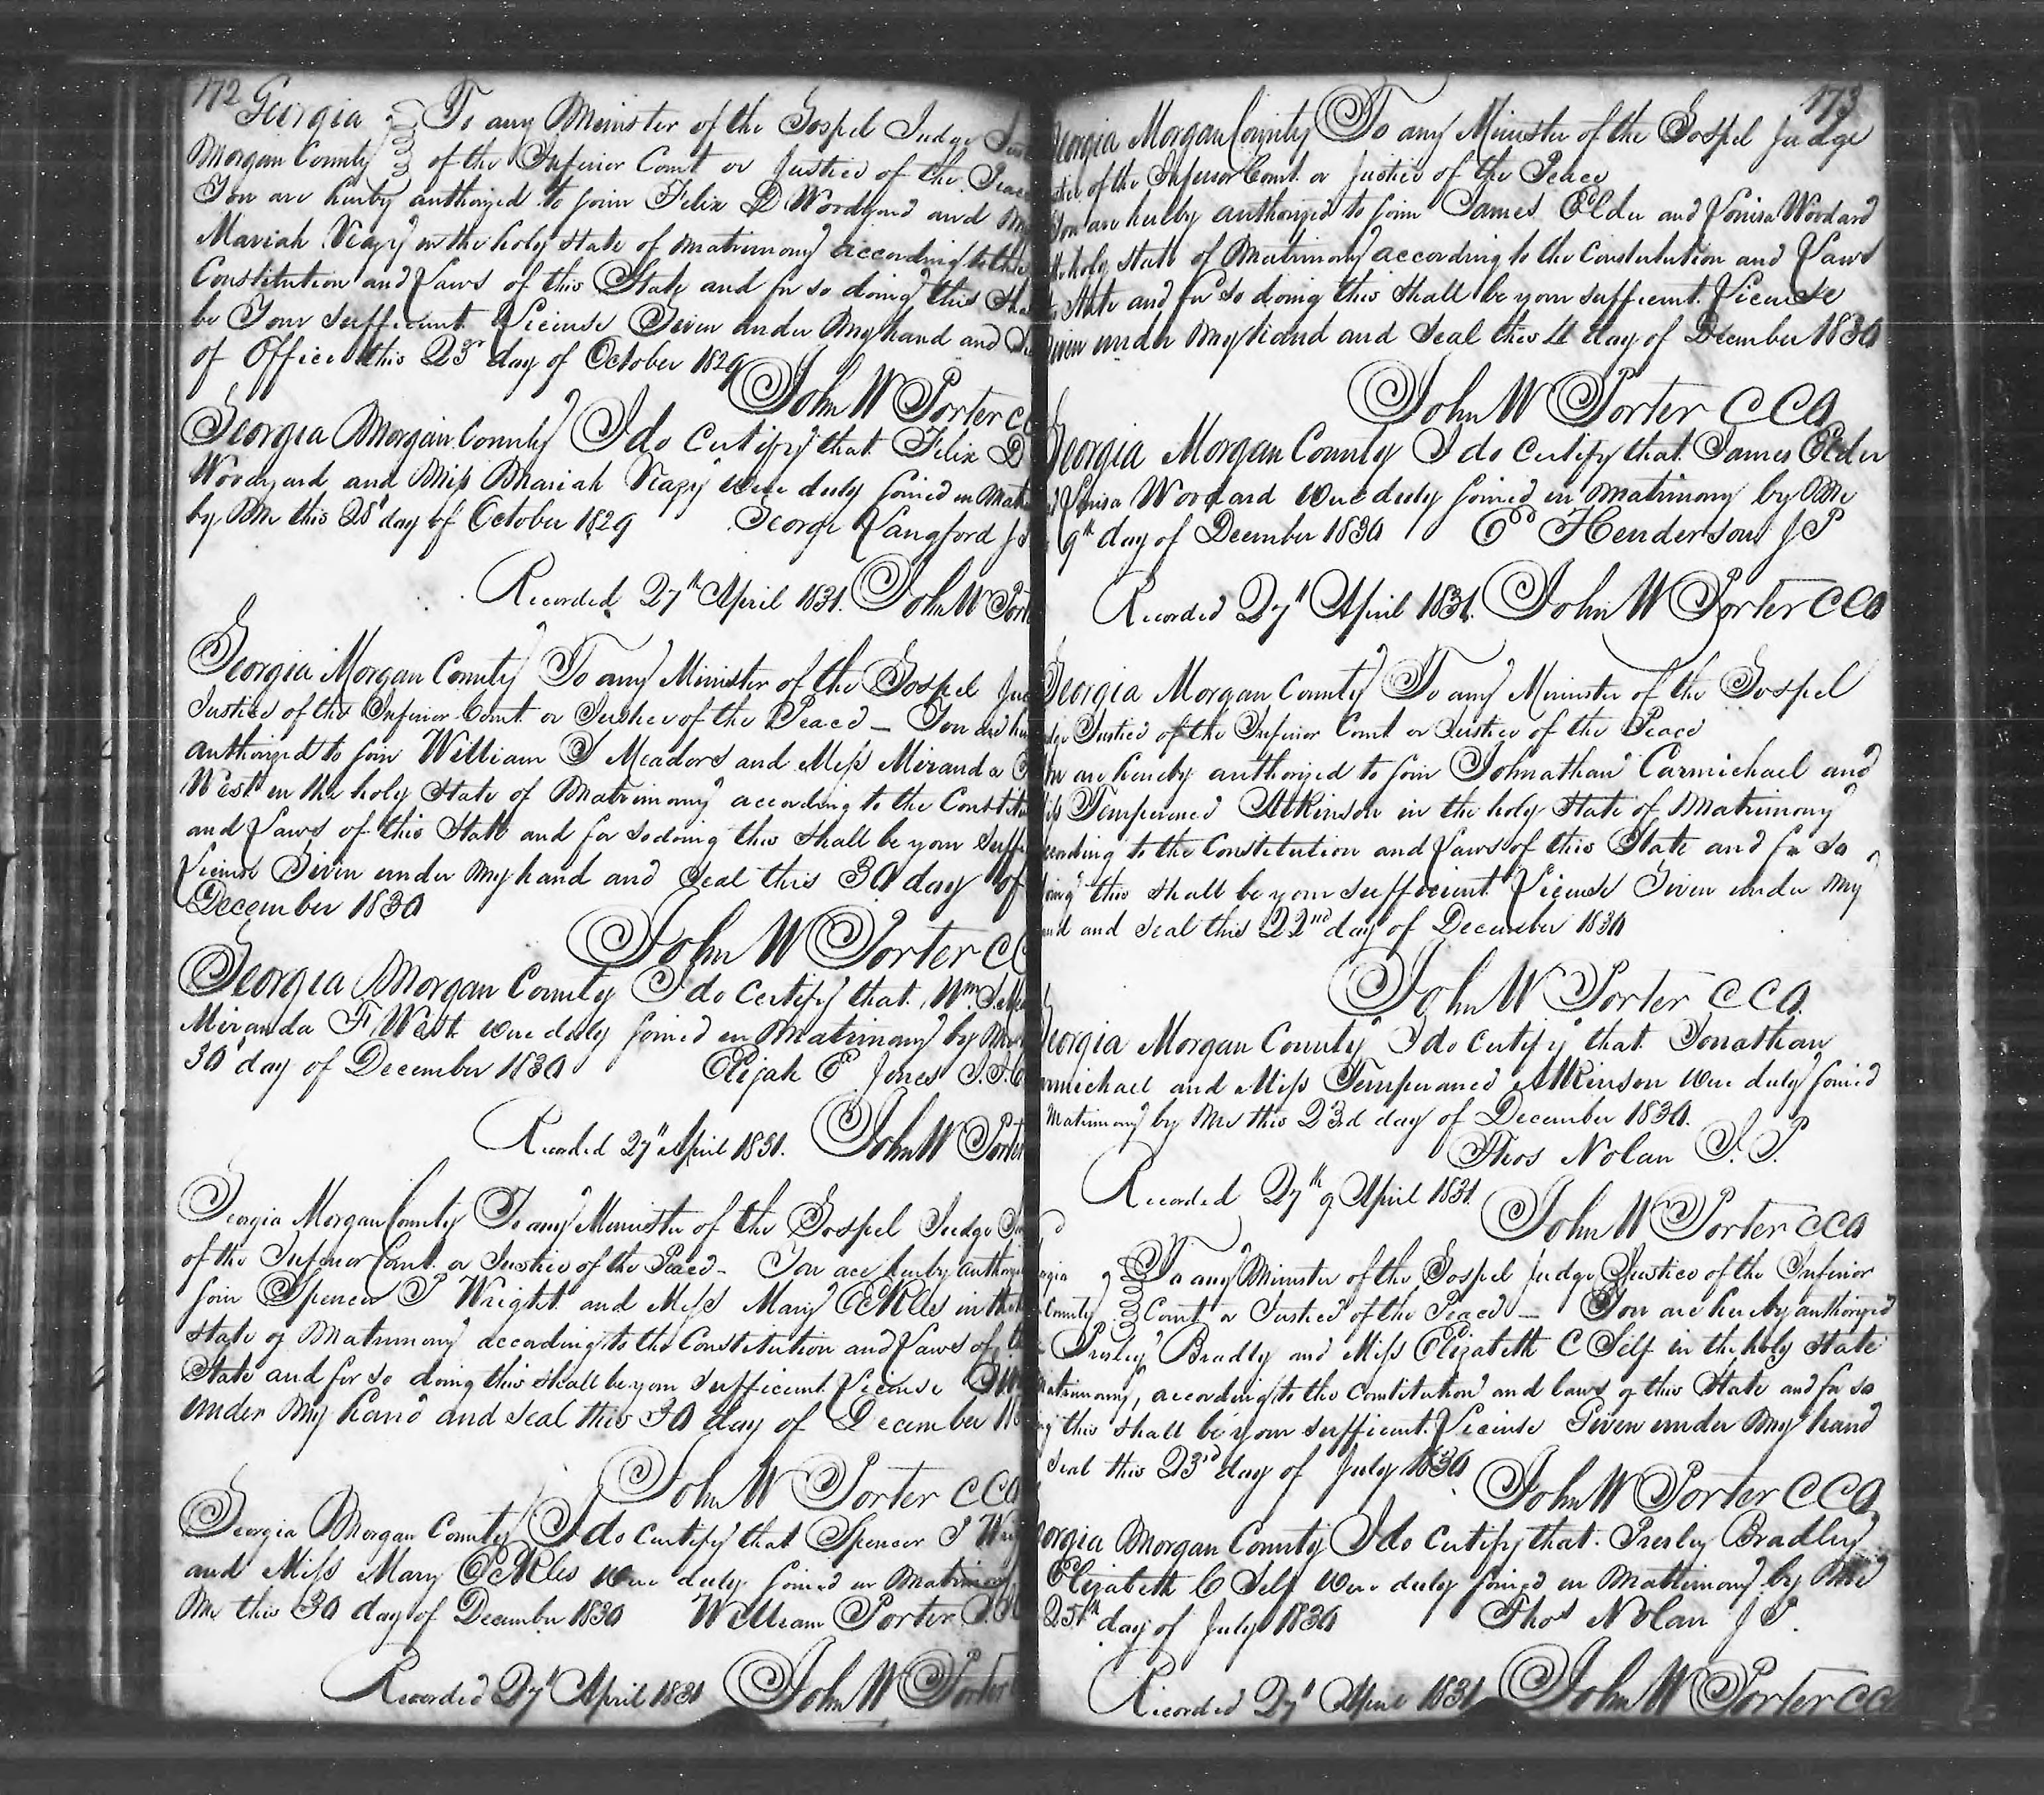 172 Georgia To any Minister of the Gospel Judge
Morgan County of the Inferior Court or Justice of the Peace
You are hereby authorized to join Felix D Woodyard and
Mariah Veazy in the holy state of matrimony according to the
Constitution and Laws of this State and for so doing this
be Your sufficient License Given under My hand and
of Office this 23r day of October 1829
John W Porter
Georgia Morgan County I do certify that Felix D
Woodyard and Miss Mariah Veazy were duly joined in
by Me this 28t day of October 1829 George Langford
Recorded 27th April 1831. John W
Georgia Morgan County To any Minister of the Gospel
Justice of the Inferior Court or Justice of the Peace – You are
authorized to join William S Meadors and Miss Miranda
West in the holy State of Matrimony according to the
and Laws of this State and for so doing this shall be your
License Given under My hand and Seal this 30 day of
December 1830
John W Porter
Georgia Morgan County I do certify that Wm S
Miranda F West were duly joined in Matrimony by
30t day of December 1830 Elijah E Jones
Recorded 27t April 1831. John W
Georgia Morgan County To any Minister of the Gospel Judge
of the Inferior Court or Justice of the Peace – You are hereby
join Spencer P Wright and Miss Mary in
State of Matrimony according to the Constitution and Laws of
State and for so doing this shall be your sufficient License
under My hand and seal this 30 day of December
John W Porter CCO
Georgia Morgan County I do certify that Spencer P
and Miss Mary were duly joined in
Me this 30 day of December 1830 William Porter
Recorded 27t April 1831 John W Porter
173
Georgia Morgan County To any Minister of the Gospel Judge
of the Inferior Court or Justice of the Peace
You are hereby authorized to join James Elder and Louisa Woodard
holy State of Matrimony according to the Constitution and Laws
State and for so doing this shall be your sufficient License
Given under My hand and Seal this 4 day of December 1830
John W Porter CCO
Georgia Morgan County I do certify that James Elder
Louisa Woodard were duly joined in matrimony by Me
9th day of December 1830 Henderson JP
Recorded 27t April 1831. John W Porter CCO
Georgia Morgan County To any Minister of the Gospel
Justice of the Inferior Court or Justice of the Peace
are hereby authorized to join Johnathan Carmichael and
Temperance Atkinson in the holy State of Matrimony
to the Constitution and Laws of this State and for so
this shall be your sufficient License Given under My
and seal this 22nd day of December 1830
John W Porter CCO.
Georgia Morgan County I do certify that Jonathan
and Miss Temperance Atkinson were duly joined
Matrimony by Me this 23d day of December 1830.
Thos Nolan J.P.
Recorded 27th of April 1831
John W Porter CCO
To any Minister of the Gospel Judge Justice of the Inferior
County Court or Justice of the Peace – You are hereby authorized
Presley Bradly and Miss Elizabeth C Self in the holy State
Matrimony, according to the constitution and laws of this State and for so
this shall be your sufficient License Given under My hand
Seal this 23rd day of July 1830
John W Porter CCO
Georgia Morgan County I do certify that Presley Bradley
Elizabeth C Self were duly joined in Matrimony by Me
25th day of July 1830 Thos Nolan JP.
Recorded 27t April 1831 John W Porter